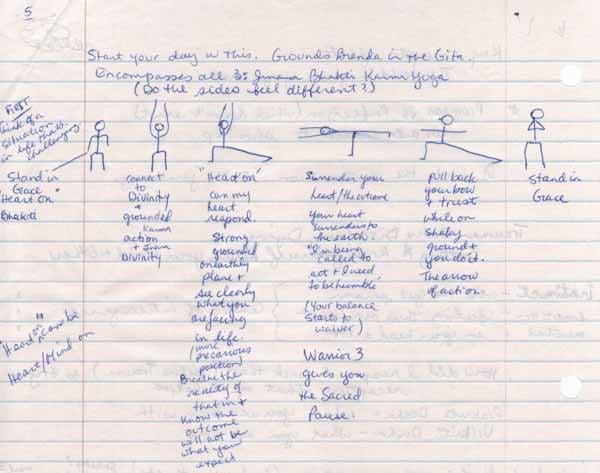 5
Start your day w this. Grounds Brenda in the Gita.
Encompasses all 3: Jnana Bhakti Karma Yoga
(Do the sides feel different?)
FIRST
think of a
situation
in life that's
challenging
Stand in
Grace
"Heart on"
Bhakti
connect
to
Divinity
+
grounded
Karma
action
+ Jnana
Divinity
"Head on"
can my
heart
respond.
Strong
grounded
on earthly
plane +
see clearly
what you
are facing
in life.
(more
precarious
position)
Breathe the
reality of
that in +
know the
outcome
will not be
what you
expect
Surrender your
heart/the outcome
your heart
surrenders to
the earth.
"I'm being
called to
act + I need
to be humble"
(Your balance
starts to
waiver)
Warrior 3
gives you
the Sacred
Pause.
pull back
your bow
+ trust
while on
shaky
ground +
you do it.
The arrow
of action.
Stand in
Grace
"Head on" can be
Heart/Mind on